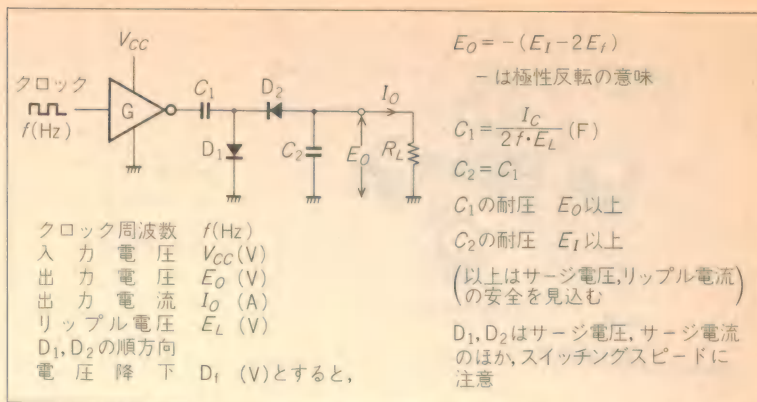 V_CC
クロック
f(Hz)
G
C₁
D₂
I_O
D₁
C₂
E_O
R_L
クロック周波数 f(Hz)
入力電圧 V_CC(V)
出力電圧 E_O (V)
出力電流 I_O (A)
リップル電圧 E_L (V)
D₁,D₂の順方向
電圧降下 D_f (V)とすると,
E_O=-(E_I-2E_f)
-は極性反転の意味
C₁=I_C/2f・E_L (F)
C₂=C₁
C₁の耐圧 E_O以上
C₂の耐圧 E_I以上
(以上はサージ電圧,リップル電流
の安全を見込む)
D₁,D₂はサージ電圧,サージ電流
のほか,スイッチングスピードに
注意